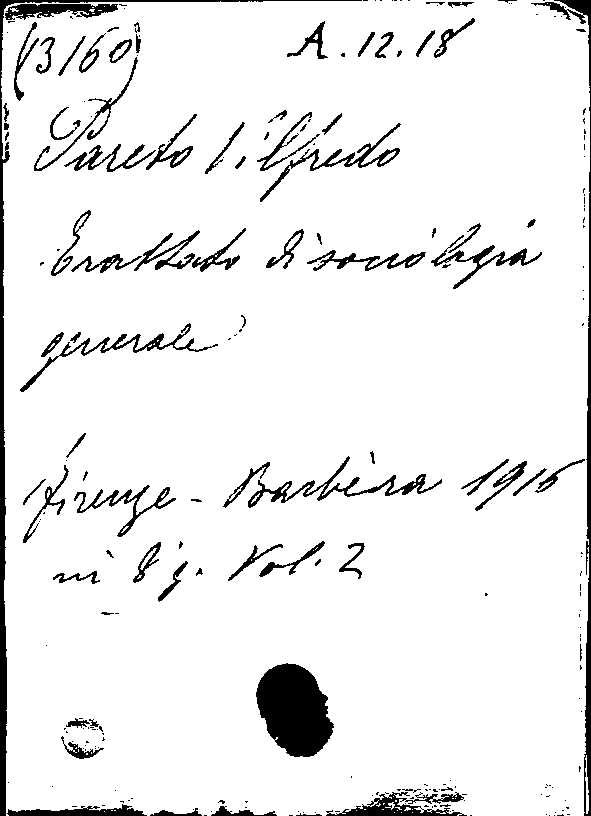 (3160) A.12.18
Pareto Vilfredo
Trattato di sociologia
generale
Firenze - Barbèra 1916
in 8° g. Vol. 2